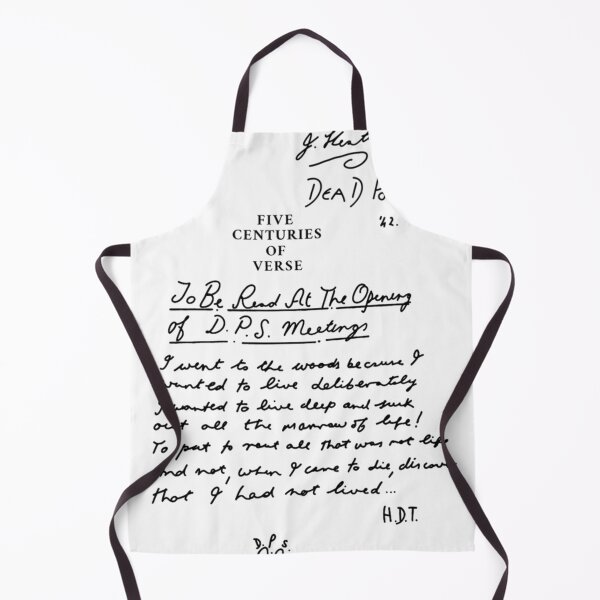 J. Keat
DEAD Po
'42.
FIVE
CENTURIES
OF
VERSE
To Be Read At The Opening
of D.P.S. Meetings
I went to the woods because I
wanted to live deliberately
I wanted to live deep and suck
out all the marrow of life!
To put to rout all that was not life
and not, when I came to die, discove
that I had not lived...
H.D.T.
D.P.S.